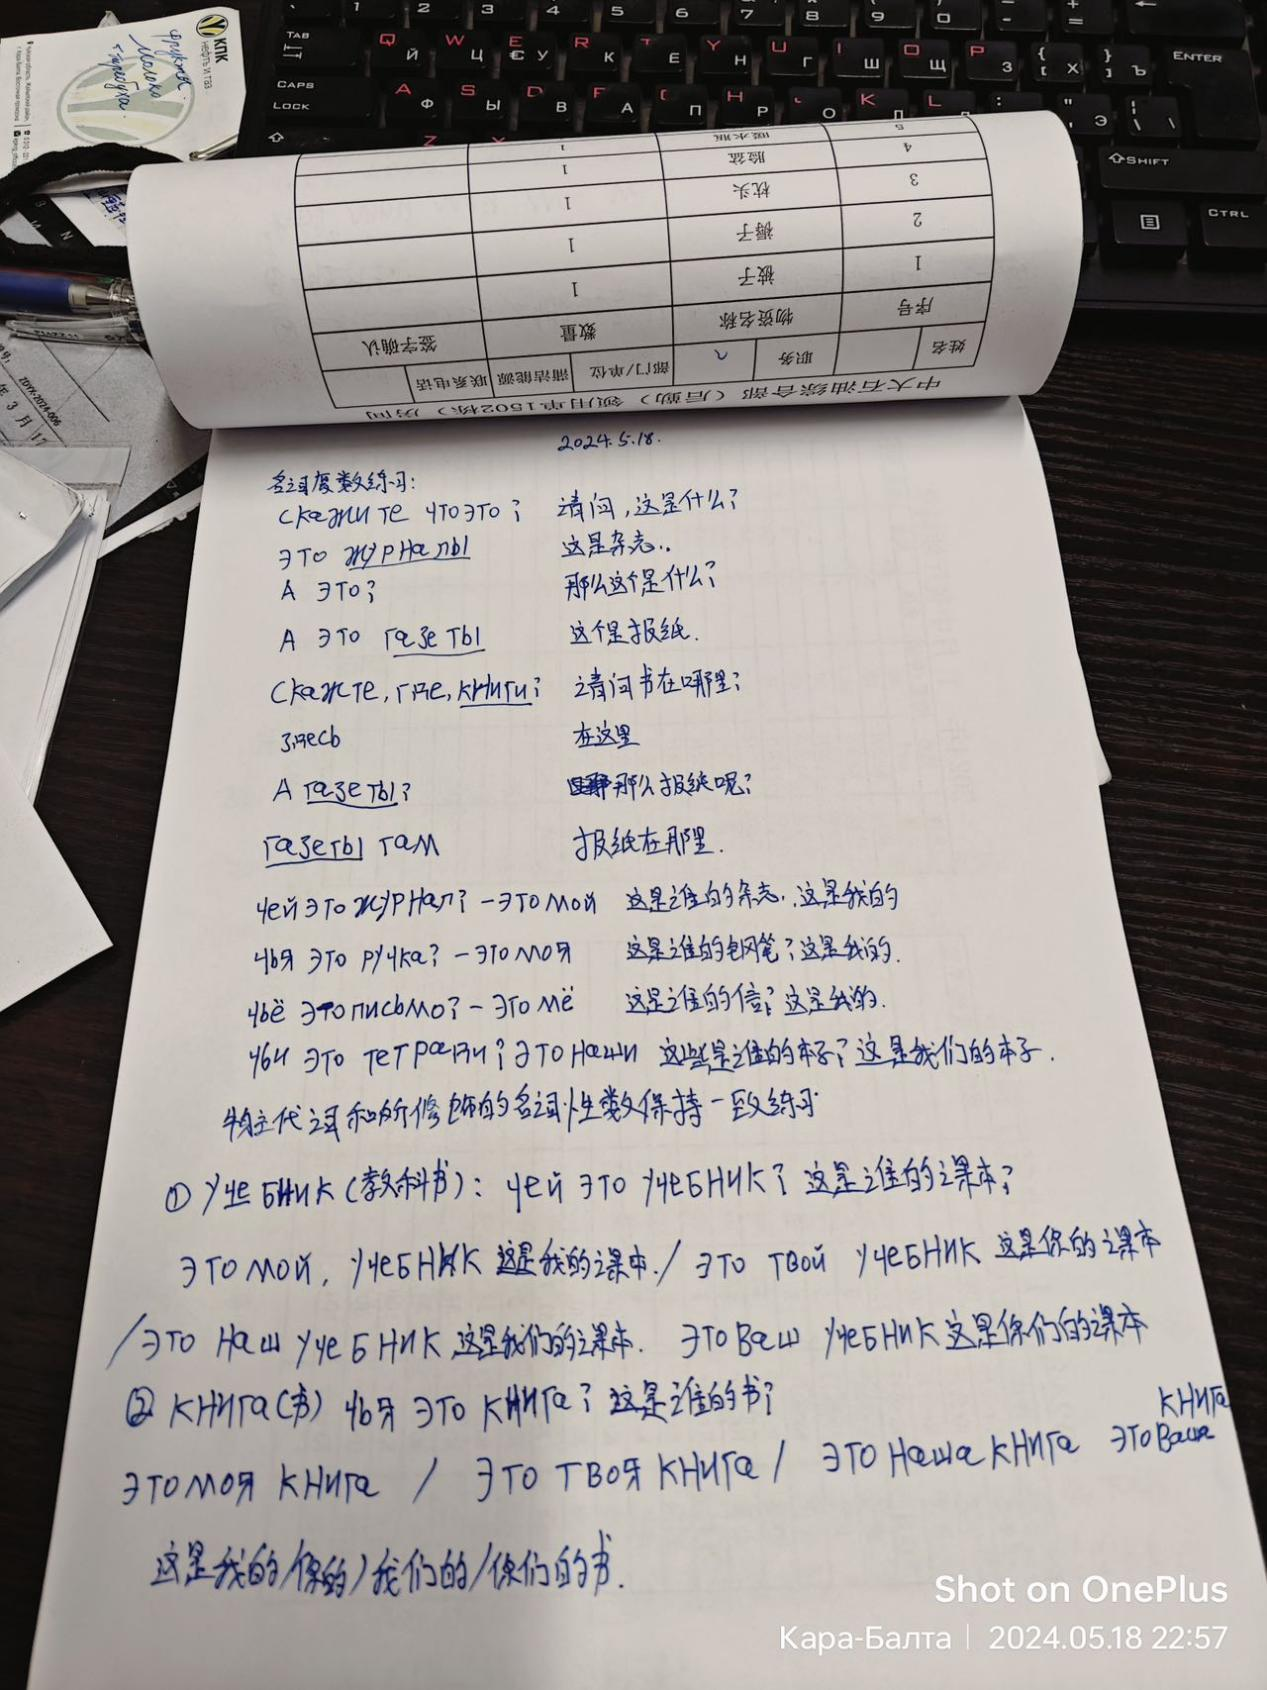 КПК
НЕФТЬ И ГАЗ
фрукты
молоко
TAB
Q W E R T Y U I O P
Й Ц У К Е Н Г Ш Щ З Х Ъ
ENTER
CAPS LOCK
A S D F G H J K L
Ф Ы В А П Р О Л Д Ж Э
SHIFT
CTRL
ZDYX-2024-006
年 3 月 17
中大石油综合部（后勤）领用单1502栋（ 房间
姓名 职务 部门/单位 清洁能源 联系电话
序号 物资名称 数量 签字确认
1 被子 1
2 褥子 1
3 枕头 1
4 脸盆 1
5 暖水瓶 1
2024.5.18.
名词复数练习:
Скажите что это? 请问,这是什么?
Это журналы 这是杂志..
А это? 那么这个是什么?
А это газеты 这个是报纸.
Скажте, где, книги? 请问书在哪里?
здесь 在这里
А газеты? 那么报纸呢?
газеты там 报纸在那里.
чей это журнал? - это мой 这是谁的杂志..这是我的
чья это ручка? - это моя 这是谁的钢笔?这是我的.
чьё это письмо? - это мё 这是谁的信? 这是我的.
чьи это тетради? это наши 这些是谁的本子?这是我们的本子.
物主代词和所修饰的名词性数保持一致练习
① Учебник (教科书): чей это учебник? 这是谁的课本?
это мой, учебник 这是我的课本. / это твой учебник 这是你的课本
/это наш учебник 这是我们的课本. это ваш учебник 这是你们的课本
② книга(书) чья это книга? 这是谁的书?
это моя книга / это твоя книга / это наша книга это ваша книга
这是我的/你的/我们的/你们的书.
Shot on OnePlus
Кара-Балта | 2024.05.18 22:57